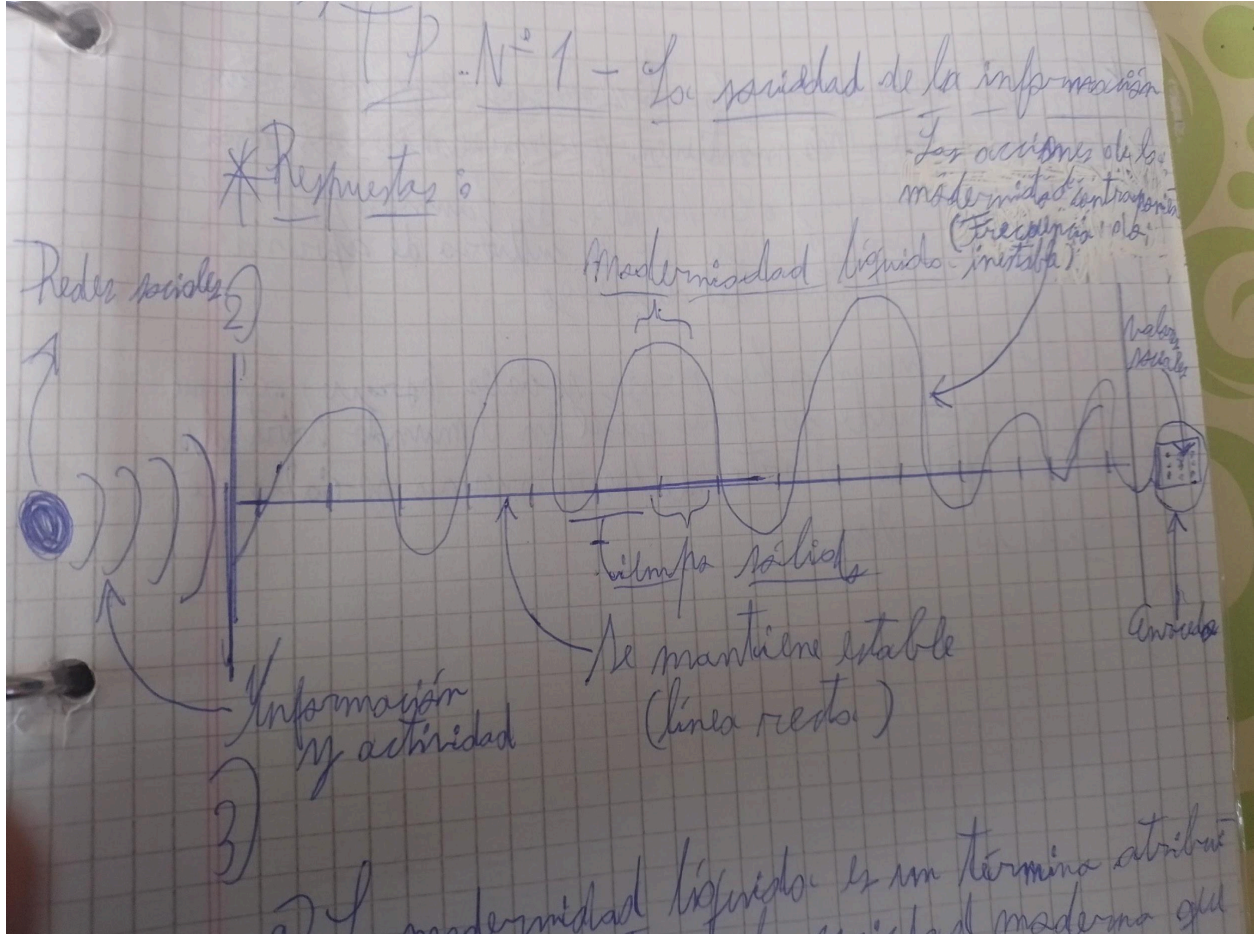 TP Nº 1 - La sociedad de la información
* Respuestas:
Las acciones de la
modernidad contraponen
(Frecuencia
inestable)
Redes sociales
2)
Modernidad líquida
Valores
sociales
Tiempo sólido
Se mantiene estable
(línea recta)
Información
y actividad
3)
a) La modernidad líquida es un término atribui
sociedad moderna que